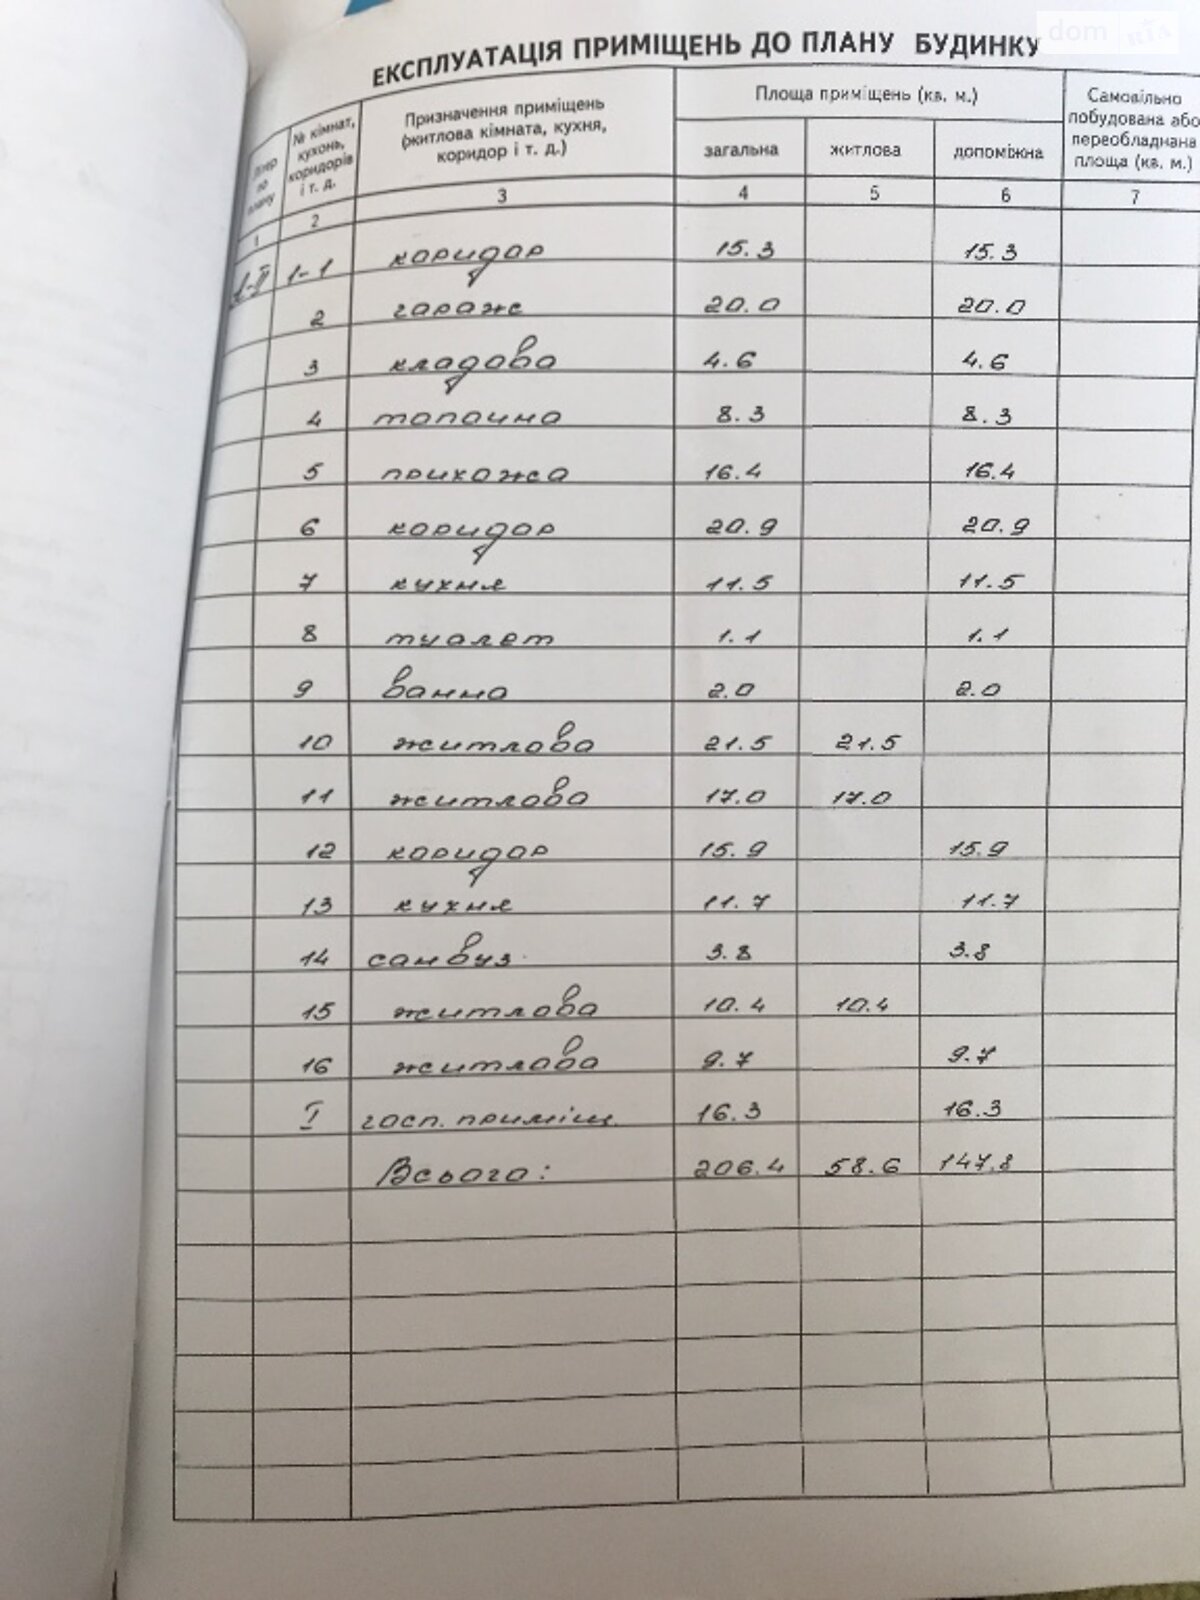 dom ria
ЕКСПЛУАТАЦІЯ ПРИМІЩЕНЬ ДО ПЛАНУ БУДИНКУ
Літер по плану
№ кімнат, кухонь, коридорів і т. д.
Призначення приміщень (житлова кімната, кухня, коридор і т. д.)
Площа приміщень (кв. м.)
загальна житлова допоміжна
Самовільно побудована або переобладнана площа (кв. м.)
1 2 3 4 5 6 7
А-ІІ 1-1 коридор 15.3 15.3
2 гараж 20.0 20.0
3 кладова 4.6 4.6
4 топочна 8.3 8.3
5 прихожа 16.4 16.4
6 коридор 20.9 20.9
7 кухня 11.5 11.5
8 туалет 1.1 1.1
9 ванна 2.0 2.0
10 житлова 21.5 21.5
11 житлова 17.0 17.0
12 коридор 15.9 15.9
13 кухня 11.7 11.7
14 санвуз. 3.8 3.8
15 житлова 10.4 10.4
16 житлова 9.7 9.7
І госп. приміщ. 16.3 16.3
Всього: 206.4 58.6 147.8